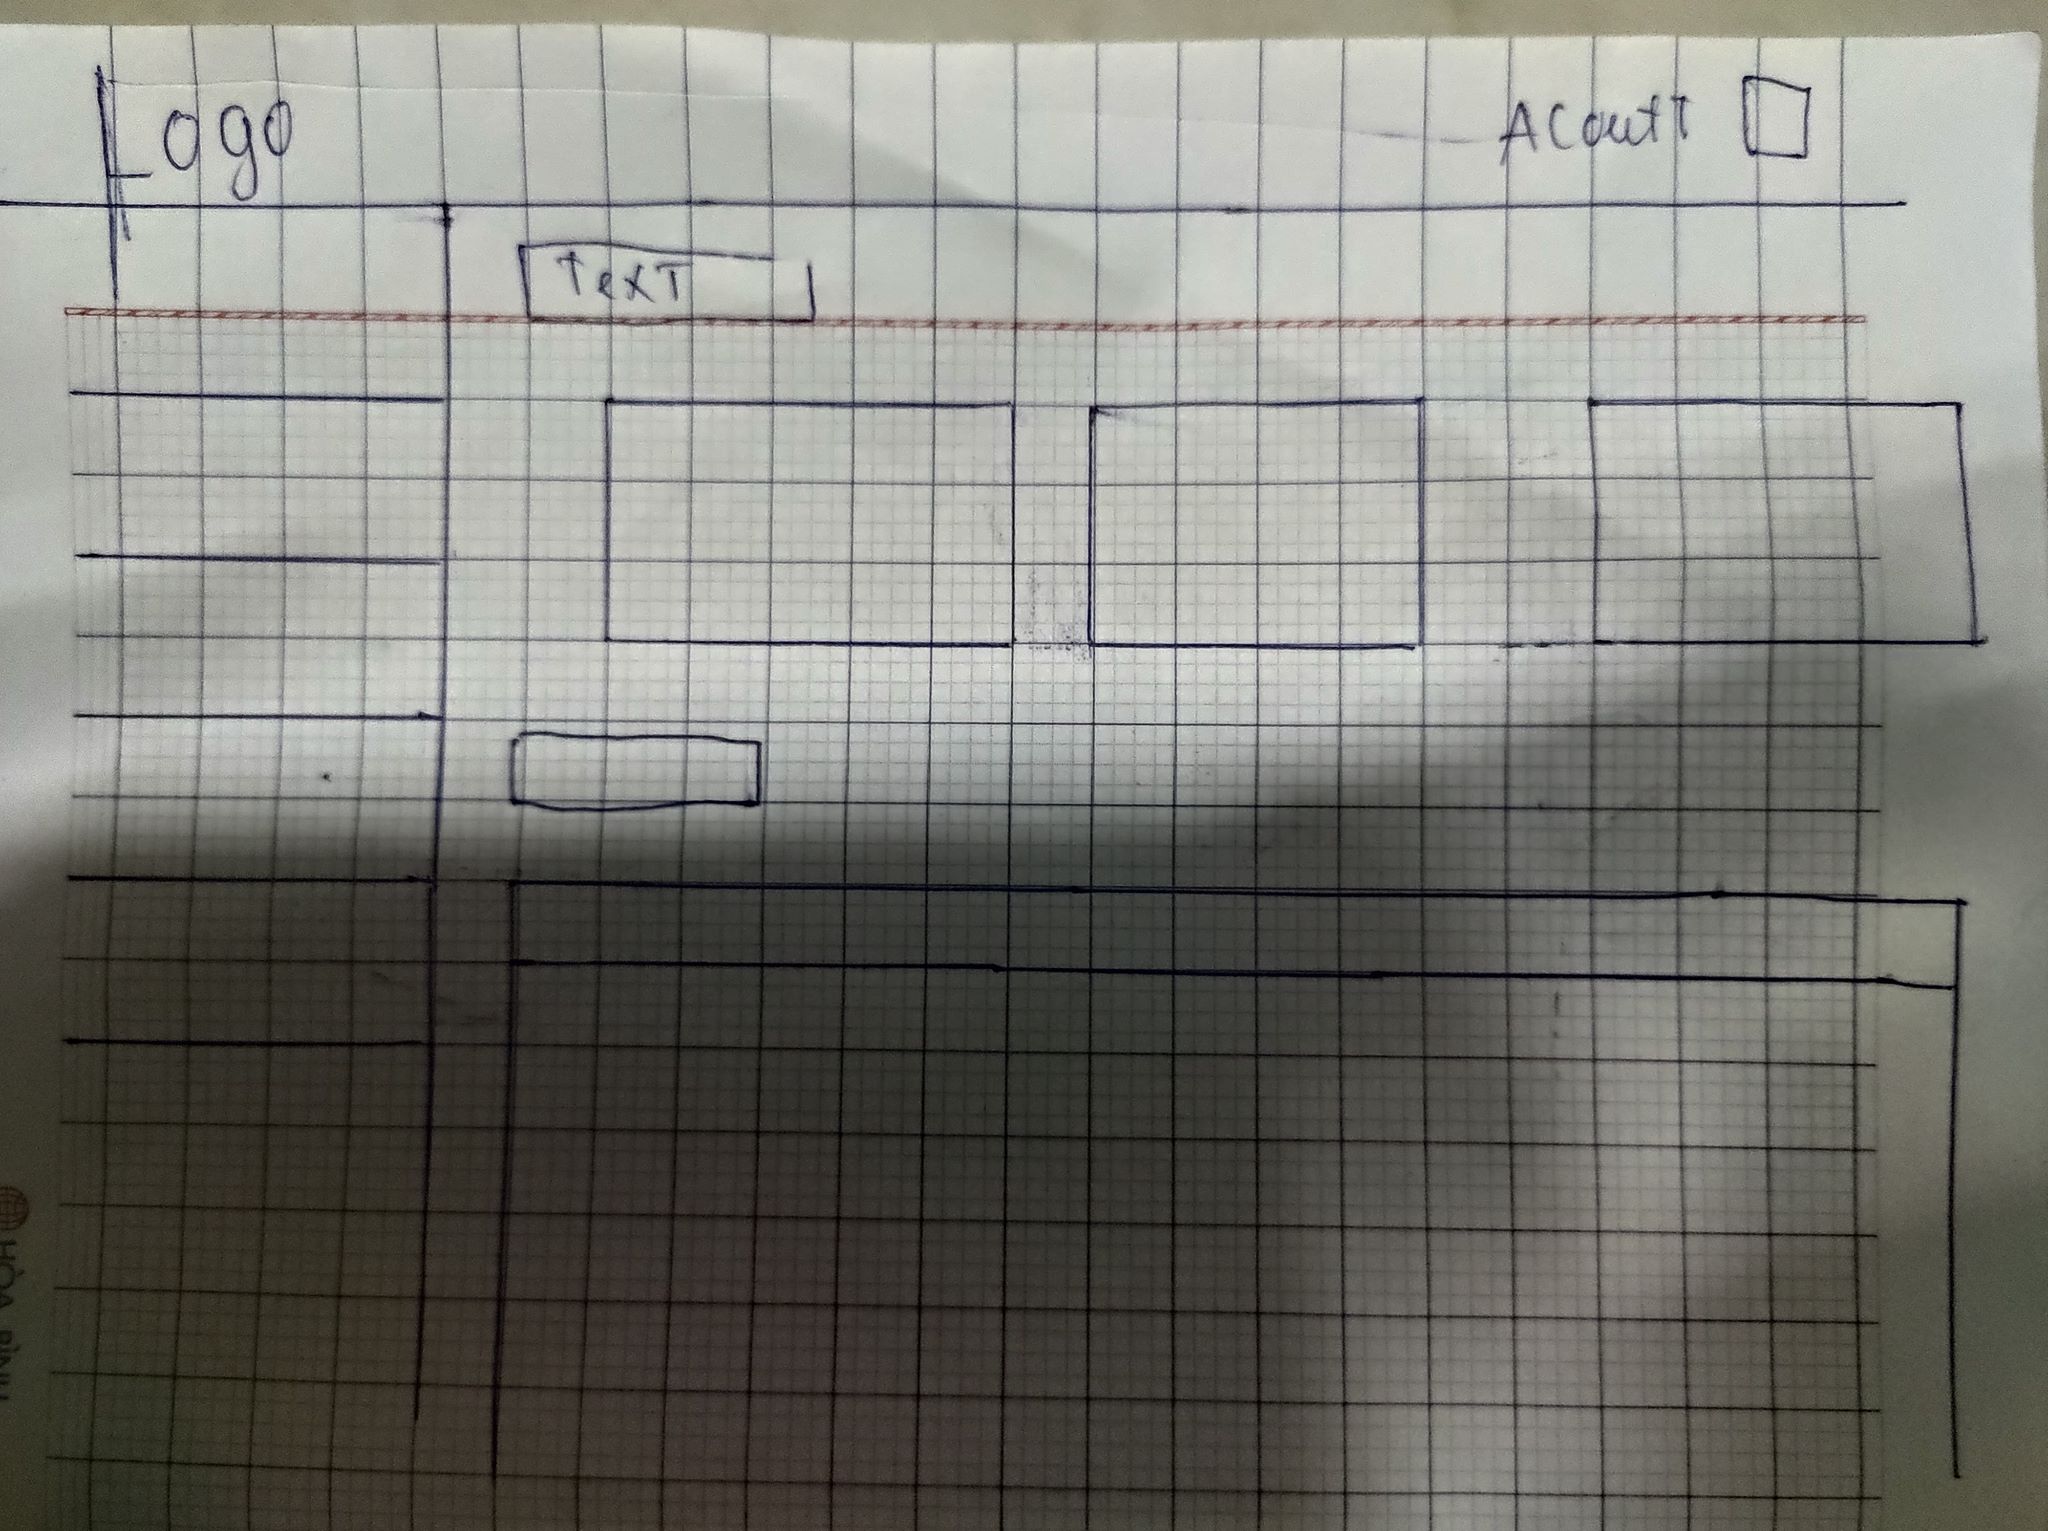 Logo
ACoutT
TexT
HÒA BÌNH